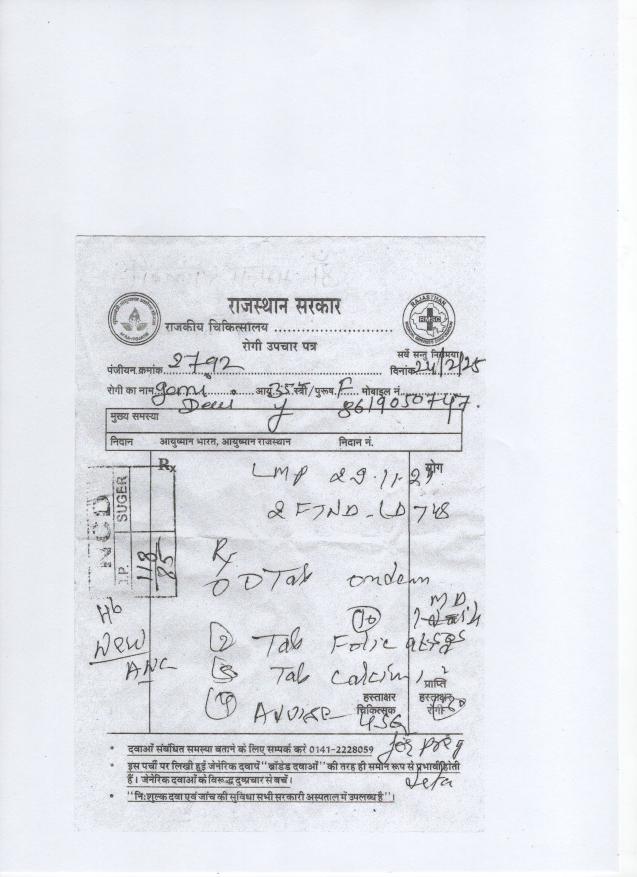 राजस्थान सरकार
राजकीय चिकित्सालय ..............................
रोगी उपचार पत्र
सर्वे सन्तु निरामया
पंजीयन क्रमांक 2792 दिनांक 24/2/25
रोगी का नाम आयु 35 स्त्री/पुरूष F मोबाइल नं.
Devi y 8619050747
मुख्य समस्या
निदान आयुष्मान भारत, आयुष्मान राजस्थान निदान नं.
Rx योग
LMP 29.11.24
NCD
SUGER
B.P. 118/85
Rx
Tab ondem
MD
10
Hb
New
ANC
2 Tab Folic
3 Tab calcium
प्राप्ति
हस्ताक्षर हस्ताक्षर
चिकित्सक रोगी
4 Advise USG
for preg
दवाओं संबंधित समस्या बताने के लिए सम्पर्क करे 0141-2228059
इस पर्ची पर लिखी हुई जेनेरिक दवायें "ब्रांडेड दवाओं" की तरह ही समान रूप से प्रभावी होती
हैं। जेनेरिक दवाओं के विरूद्ध दुष्प्रचार से बचें।
"निःशुल्क दवा एवं जांच की सुविधा सभी सरकारी अस्पताल में उपलब्ध है"।